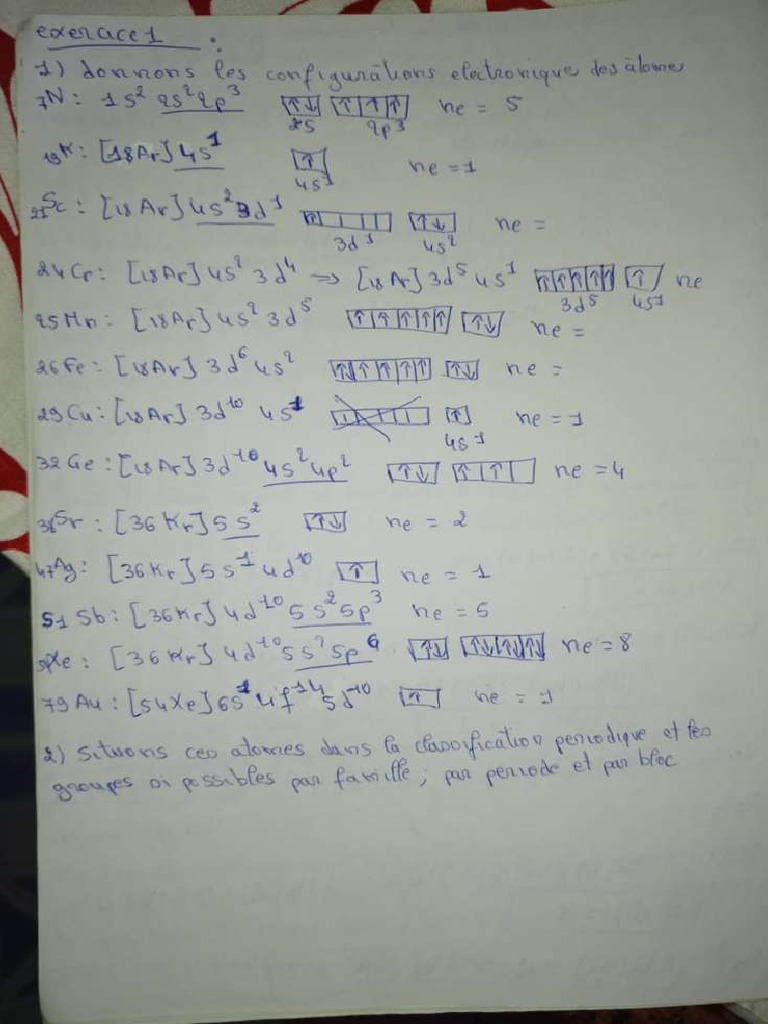 exercice 1 :
1) donnons les configurations electronique des atome
7N: 1s² 2s² 2p³ ↑↓ ↑ ↑ ↑ ne = 5
2s 2p³
19K: [18Ar] 4s¹ ↑ ne = 1
4s¹
21Sc: [18Ar] 4s² 3d¹ ↑ ↑↓ ne =
3d¹ 4s²
24Cr: [18Ar] 4s² 3d⁴ => [18Ar] 3d⁵ 4s¹ ↑ ↑ ↑ ↑ ↑ ↑ ne
3d⁵ 4s¹
25Mn: [18Ar] 4s² 3d⁵ ↑ ↑ ↑ ↑ ↑ ↑↓ ne =
26Fe: [18Ar] 3d⁶ 4s² ↑↓ ↑ ↑ ↑ ↑ ↑↓ ne =
29Cu: [18Ar] 3d¹⁰ 4s¹ ↑ ne = 1
4s¹
32Ge: [18Ar] 3d¹⁰ 4s² 4p² ↑↓ ↑ ↑ ne = 4
Sr: [36Kr] 5s² ↑↓ ne = 2
47Ag: [36Kr] 5s¹ 4d¹⁰ ↑ ne = 1
51Sb: [36Kr] 4d¹⁰ 5s² 5p³ ne = 5
Xe: [36Kr] 4d¹⁰ 5s² 5p⁶ ↑↓ ↑↓ ↑↓ ↑↓ ne = 8
79Au: [54Xe] 6s¹ 4f¹⁴ 5d¹⁰ ↑ ne = 1
2) Situons ces atomes dans la classification periodique et les
groupes si possibles par famille; par periode et par bloc